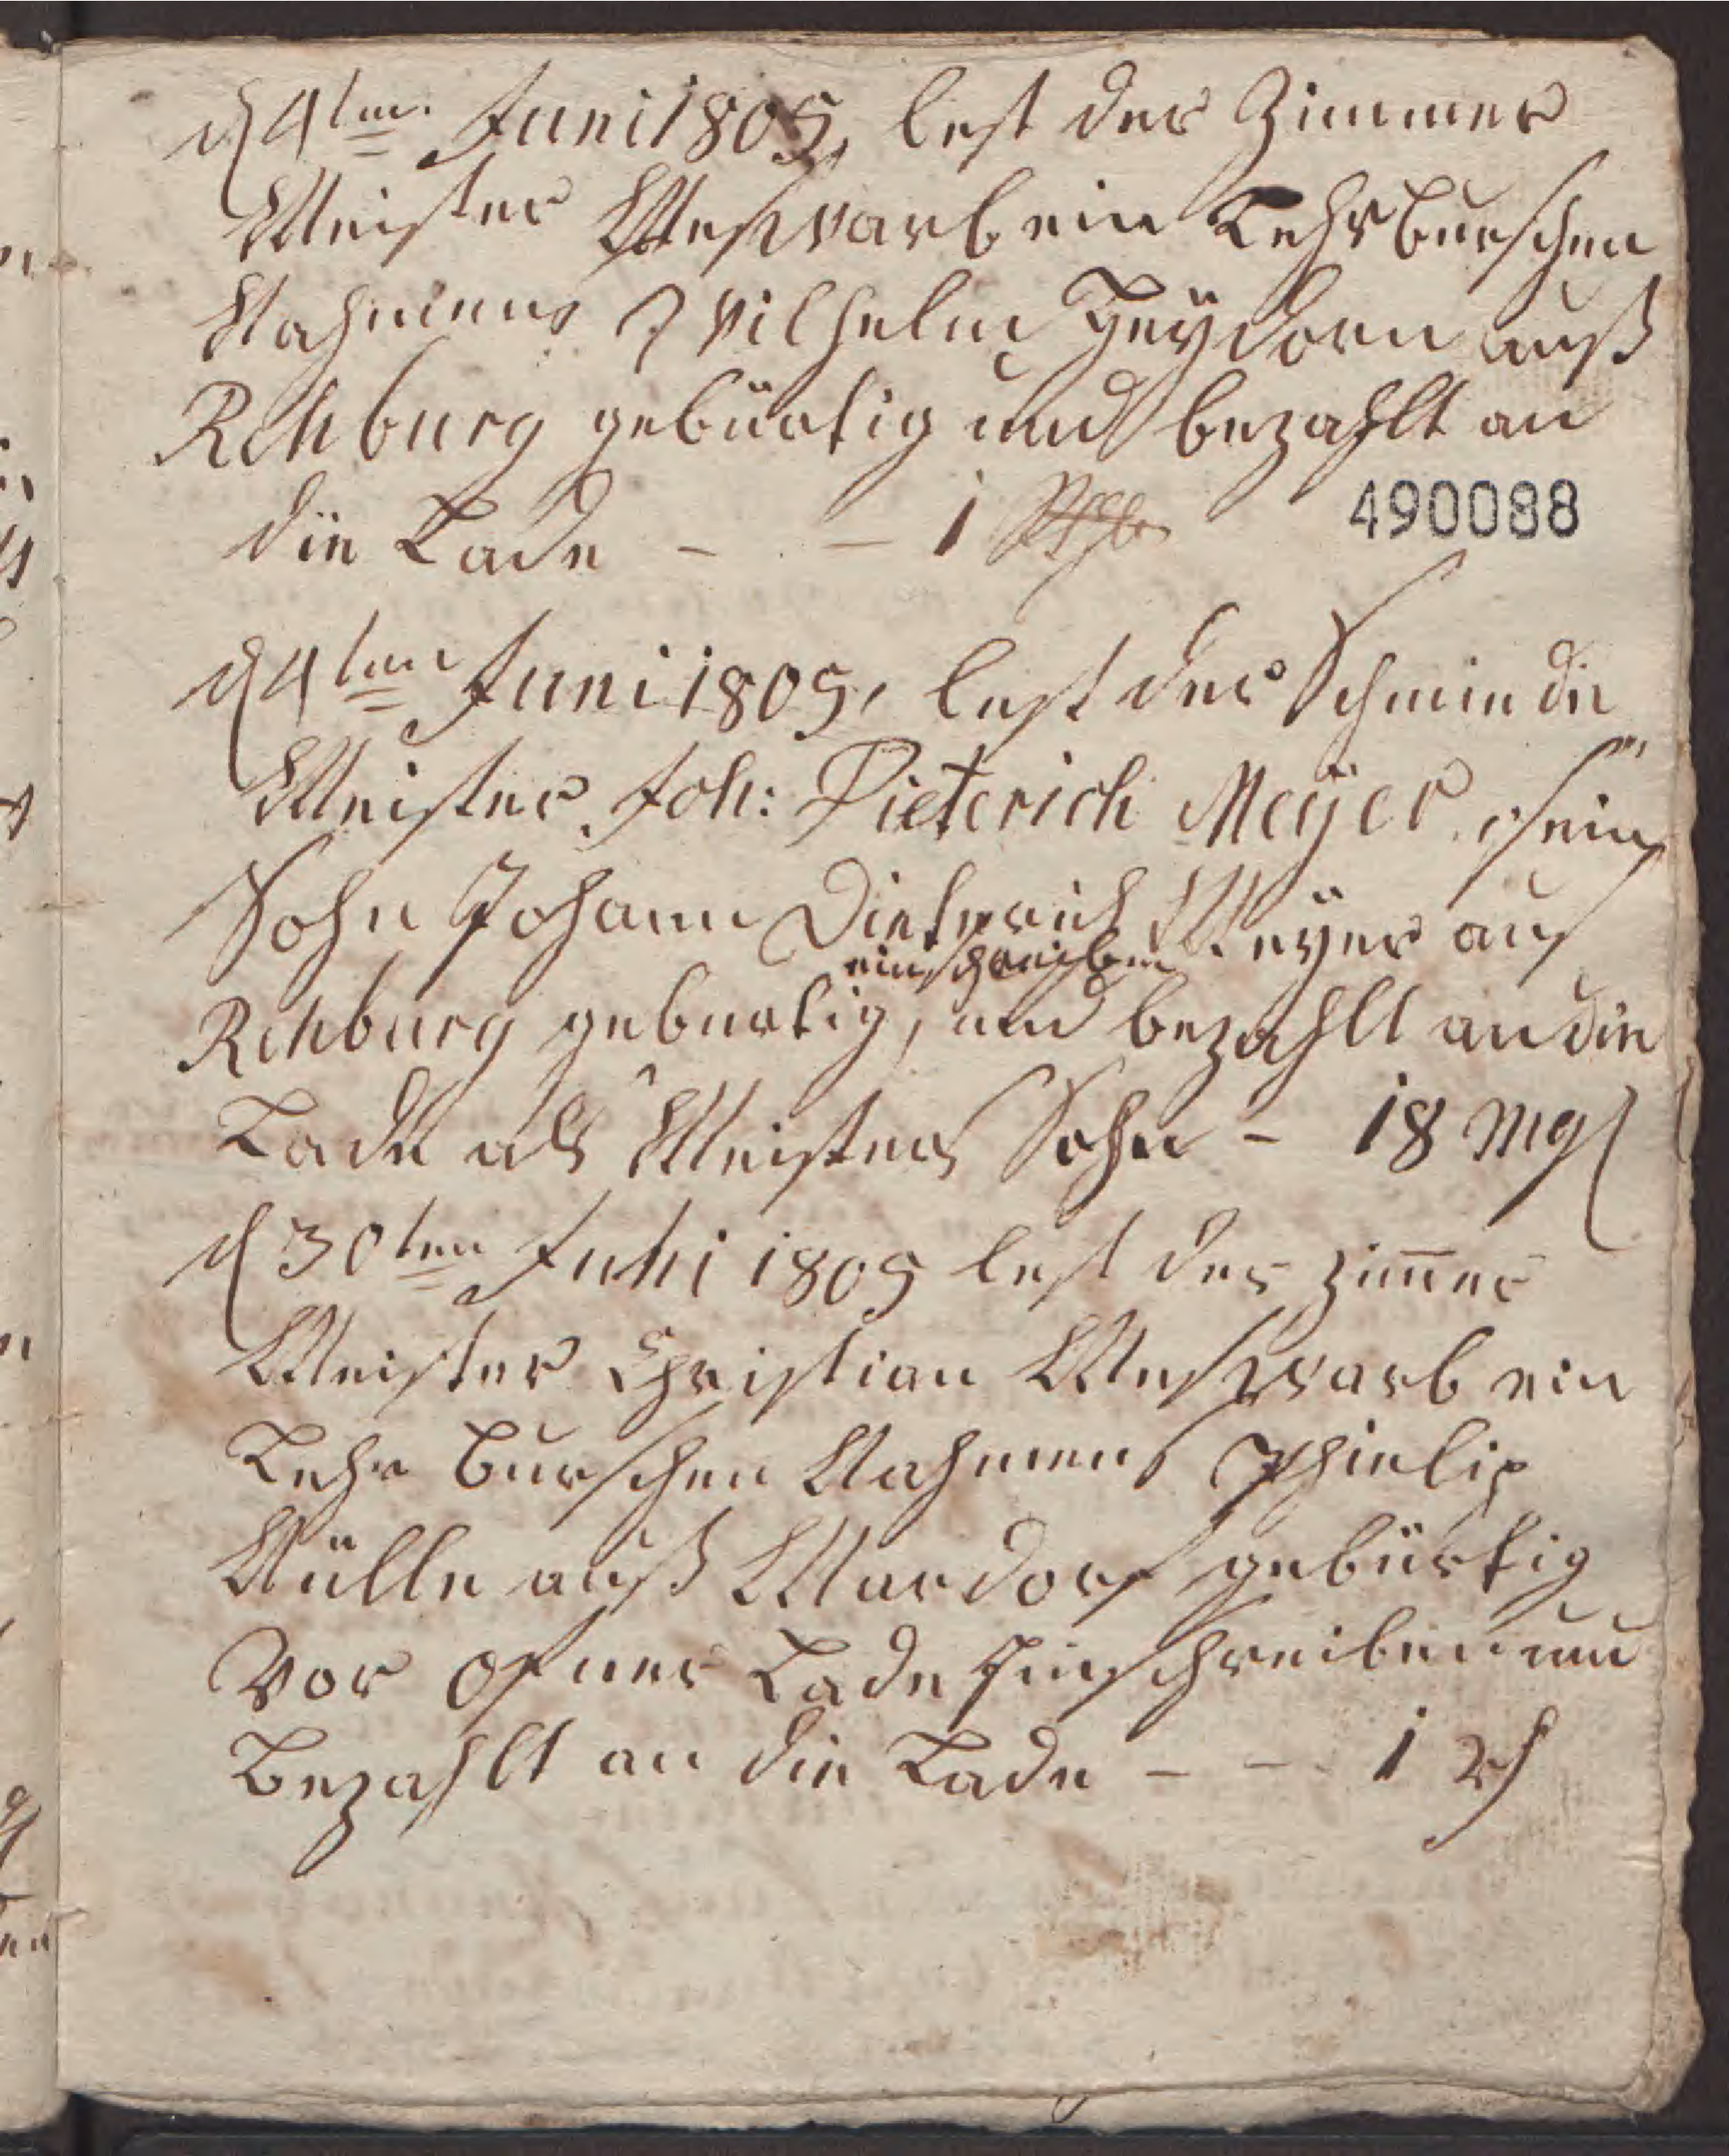 d 4ten Juni 1805, lest der Zimmer
Meister Meswarb ein Lehrburschen
Nahmens Wilhelm Heÿdorn auß
Rehburg gebürtig und bezahlt an
die Lade - - 1 Rthlr
490088
d 4ten Juni 1805, lest der Schmiede
Meister Joh: Dieterich Meÿer, sein
Sohn Johann Dieterich Meÿer aus
einschreiben
Rehburg geburtig, und bezahlt an die
Lade als Meisters Sohn - 18 mg
d 30ten Juni 1805 lest der Zim̄er
Meister Christian Meswarb ein
Lehr Burschen Nahmens Phielip
Nülle auß Mardorf gebürtig
Vor ofner Lade Einschreiben und
Bezahlt an die Lade - - 1 rh